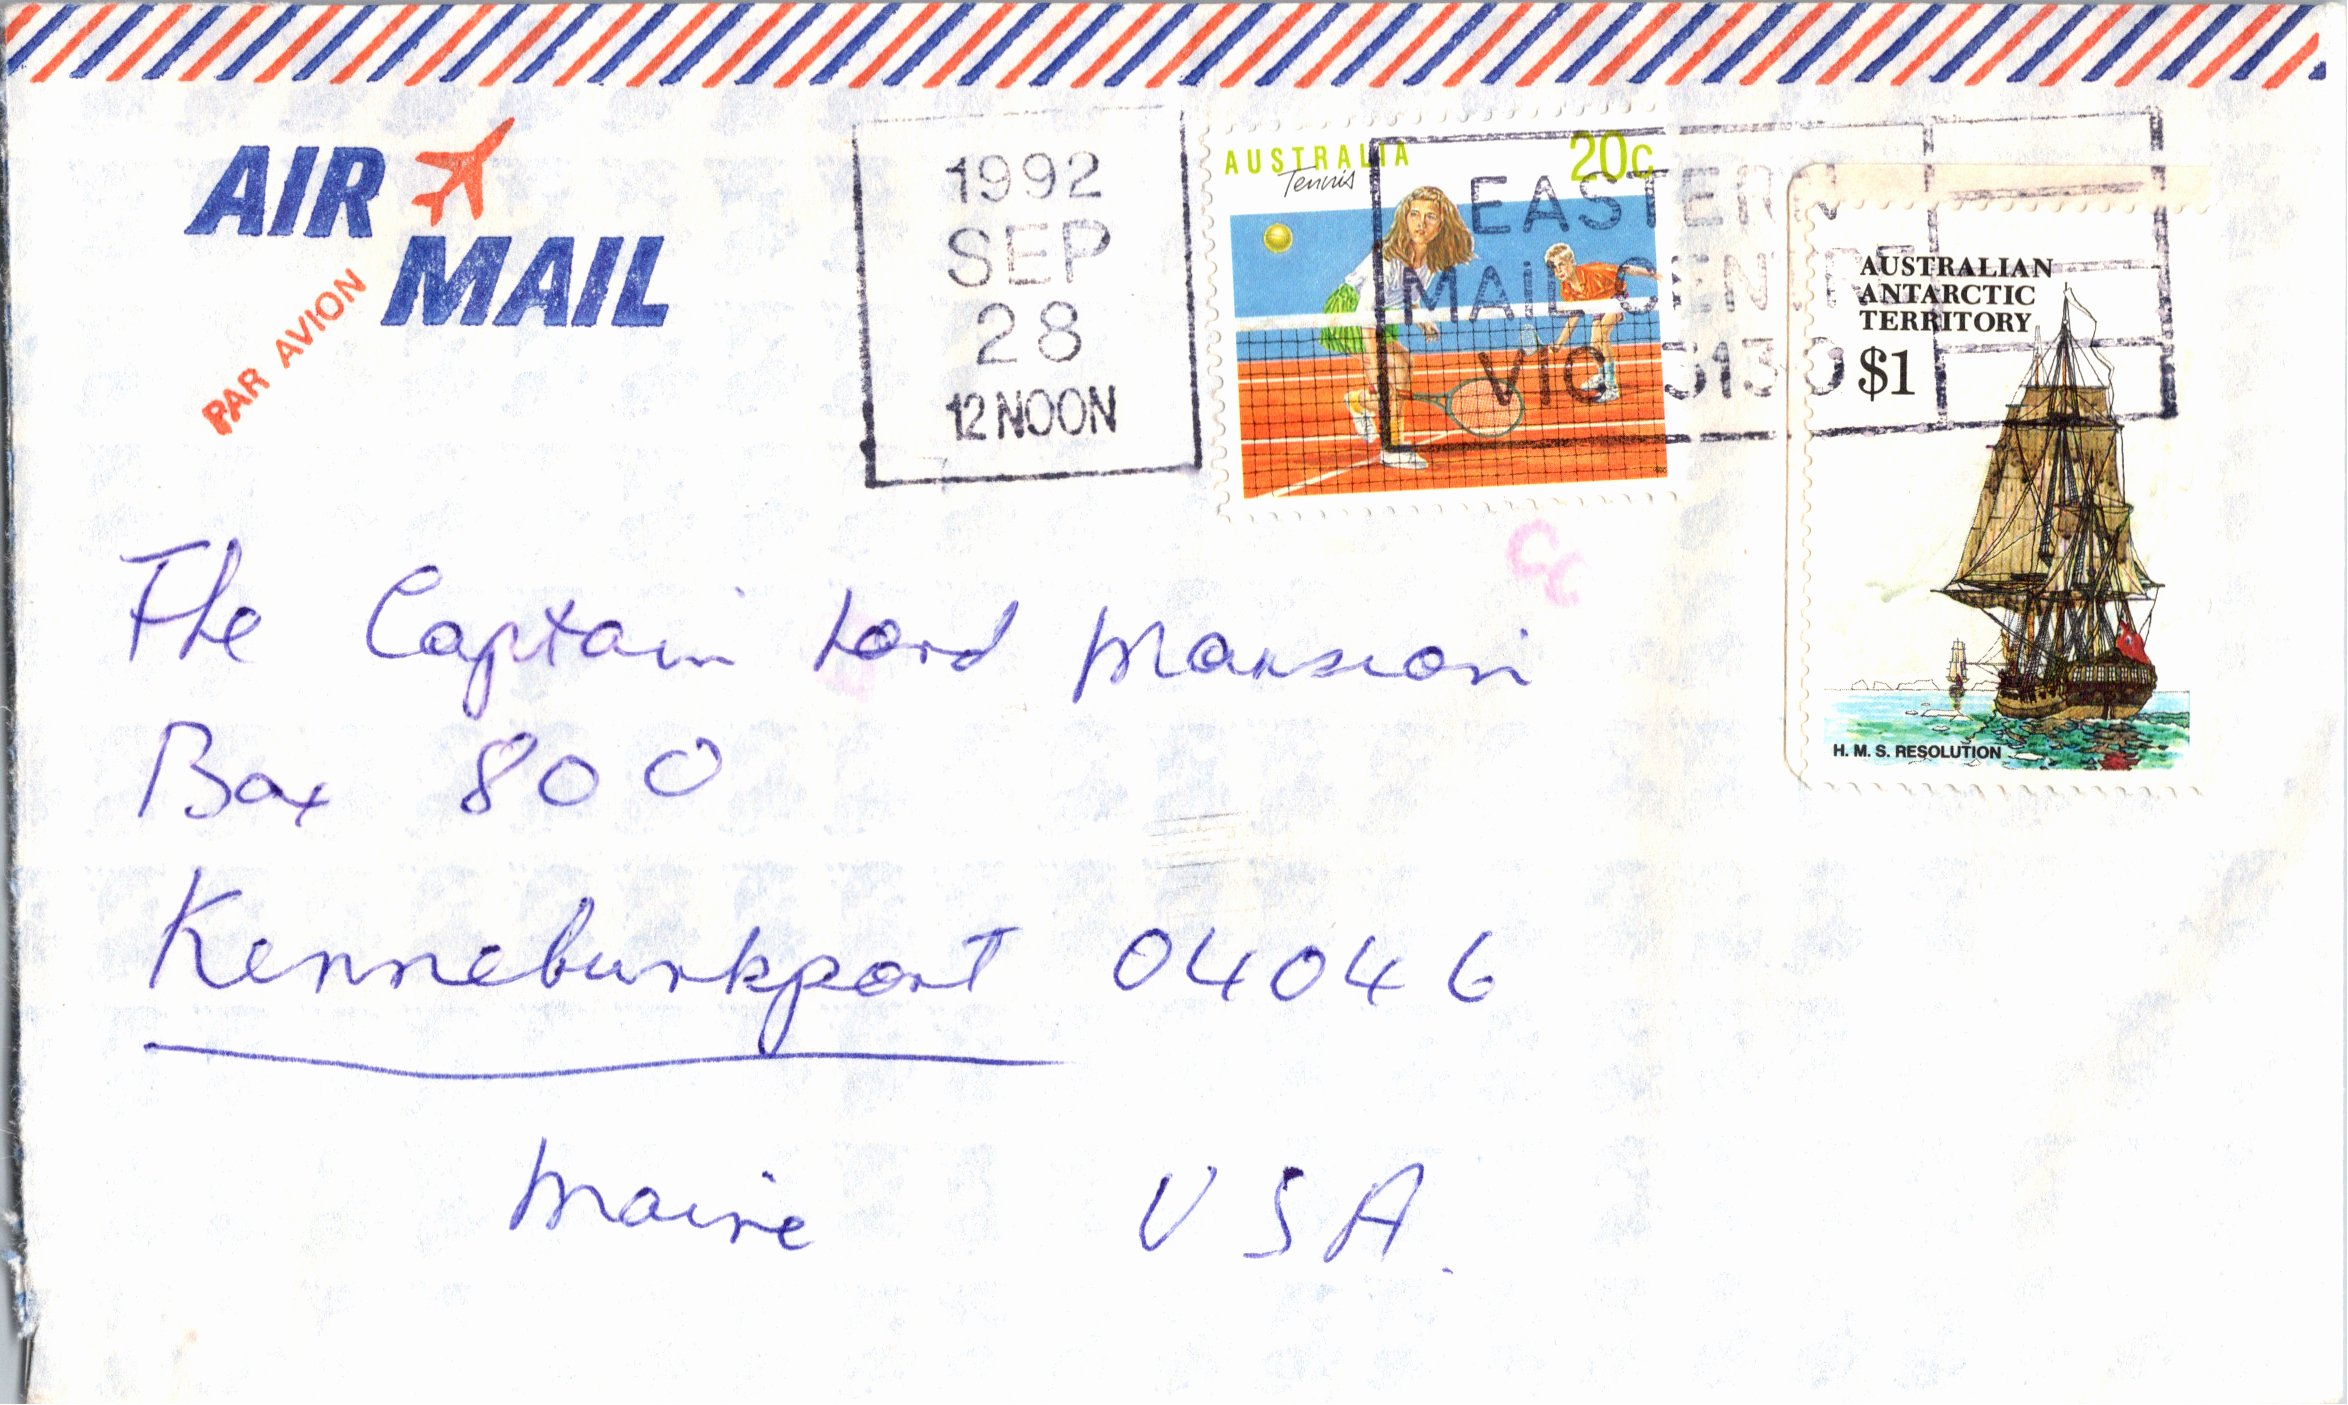 AIR
MAIL
PAR AVION
1992
SEP
28
12 NOON
AUSTRALIA 20c
Tennis
EASTERN
MAIL CENTRE
VIC 3130
AUSTRALIAN
ANTARCTIC
TERRITORY
$1
H. M. S. RESOLUTION
The Captain Lord Mansion
Box 800
Kennebunkport 04046
Maine USA.